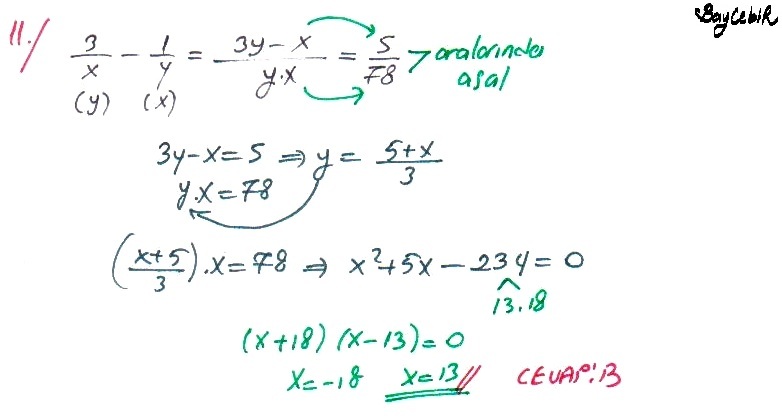 BayCebiR
11./ 3/x - 1/y = (3y - x)/(y.x) = 5/78 > aralarında asal
(y) (x)
3y - x = 5 ⇒ y = (5+x)/3
y.x = 78
((x+5)/3).x = 78 ⇒ x²+5x - 234 = 0
13.18
(x+18) (x-13) = 0
x = -18 x = 13 // CEVAP: 13